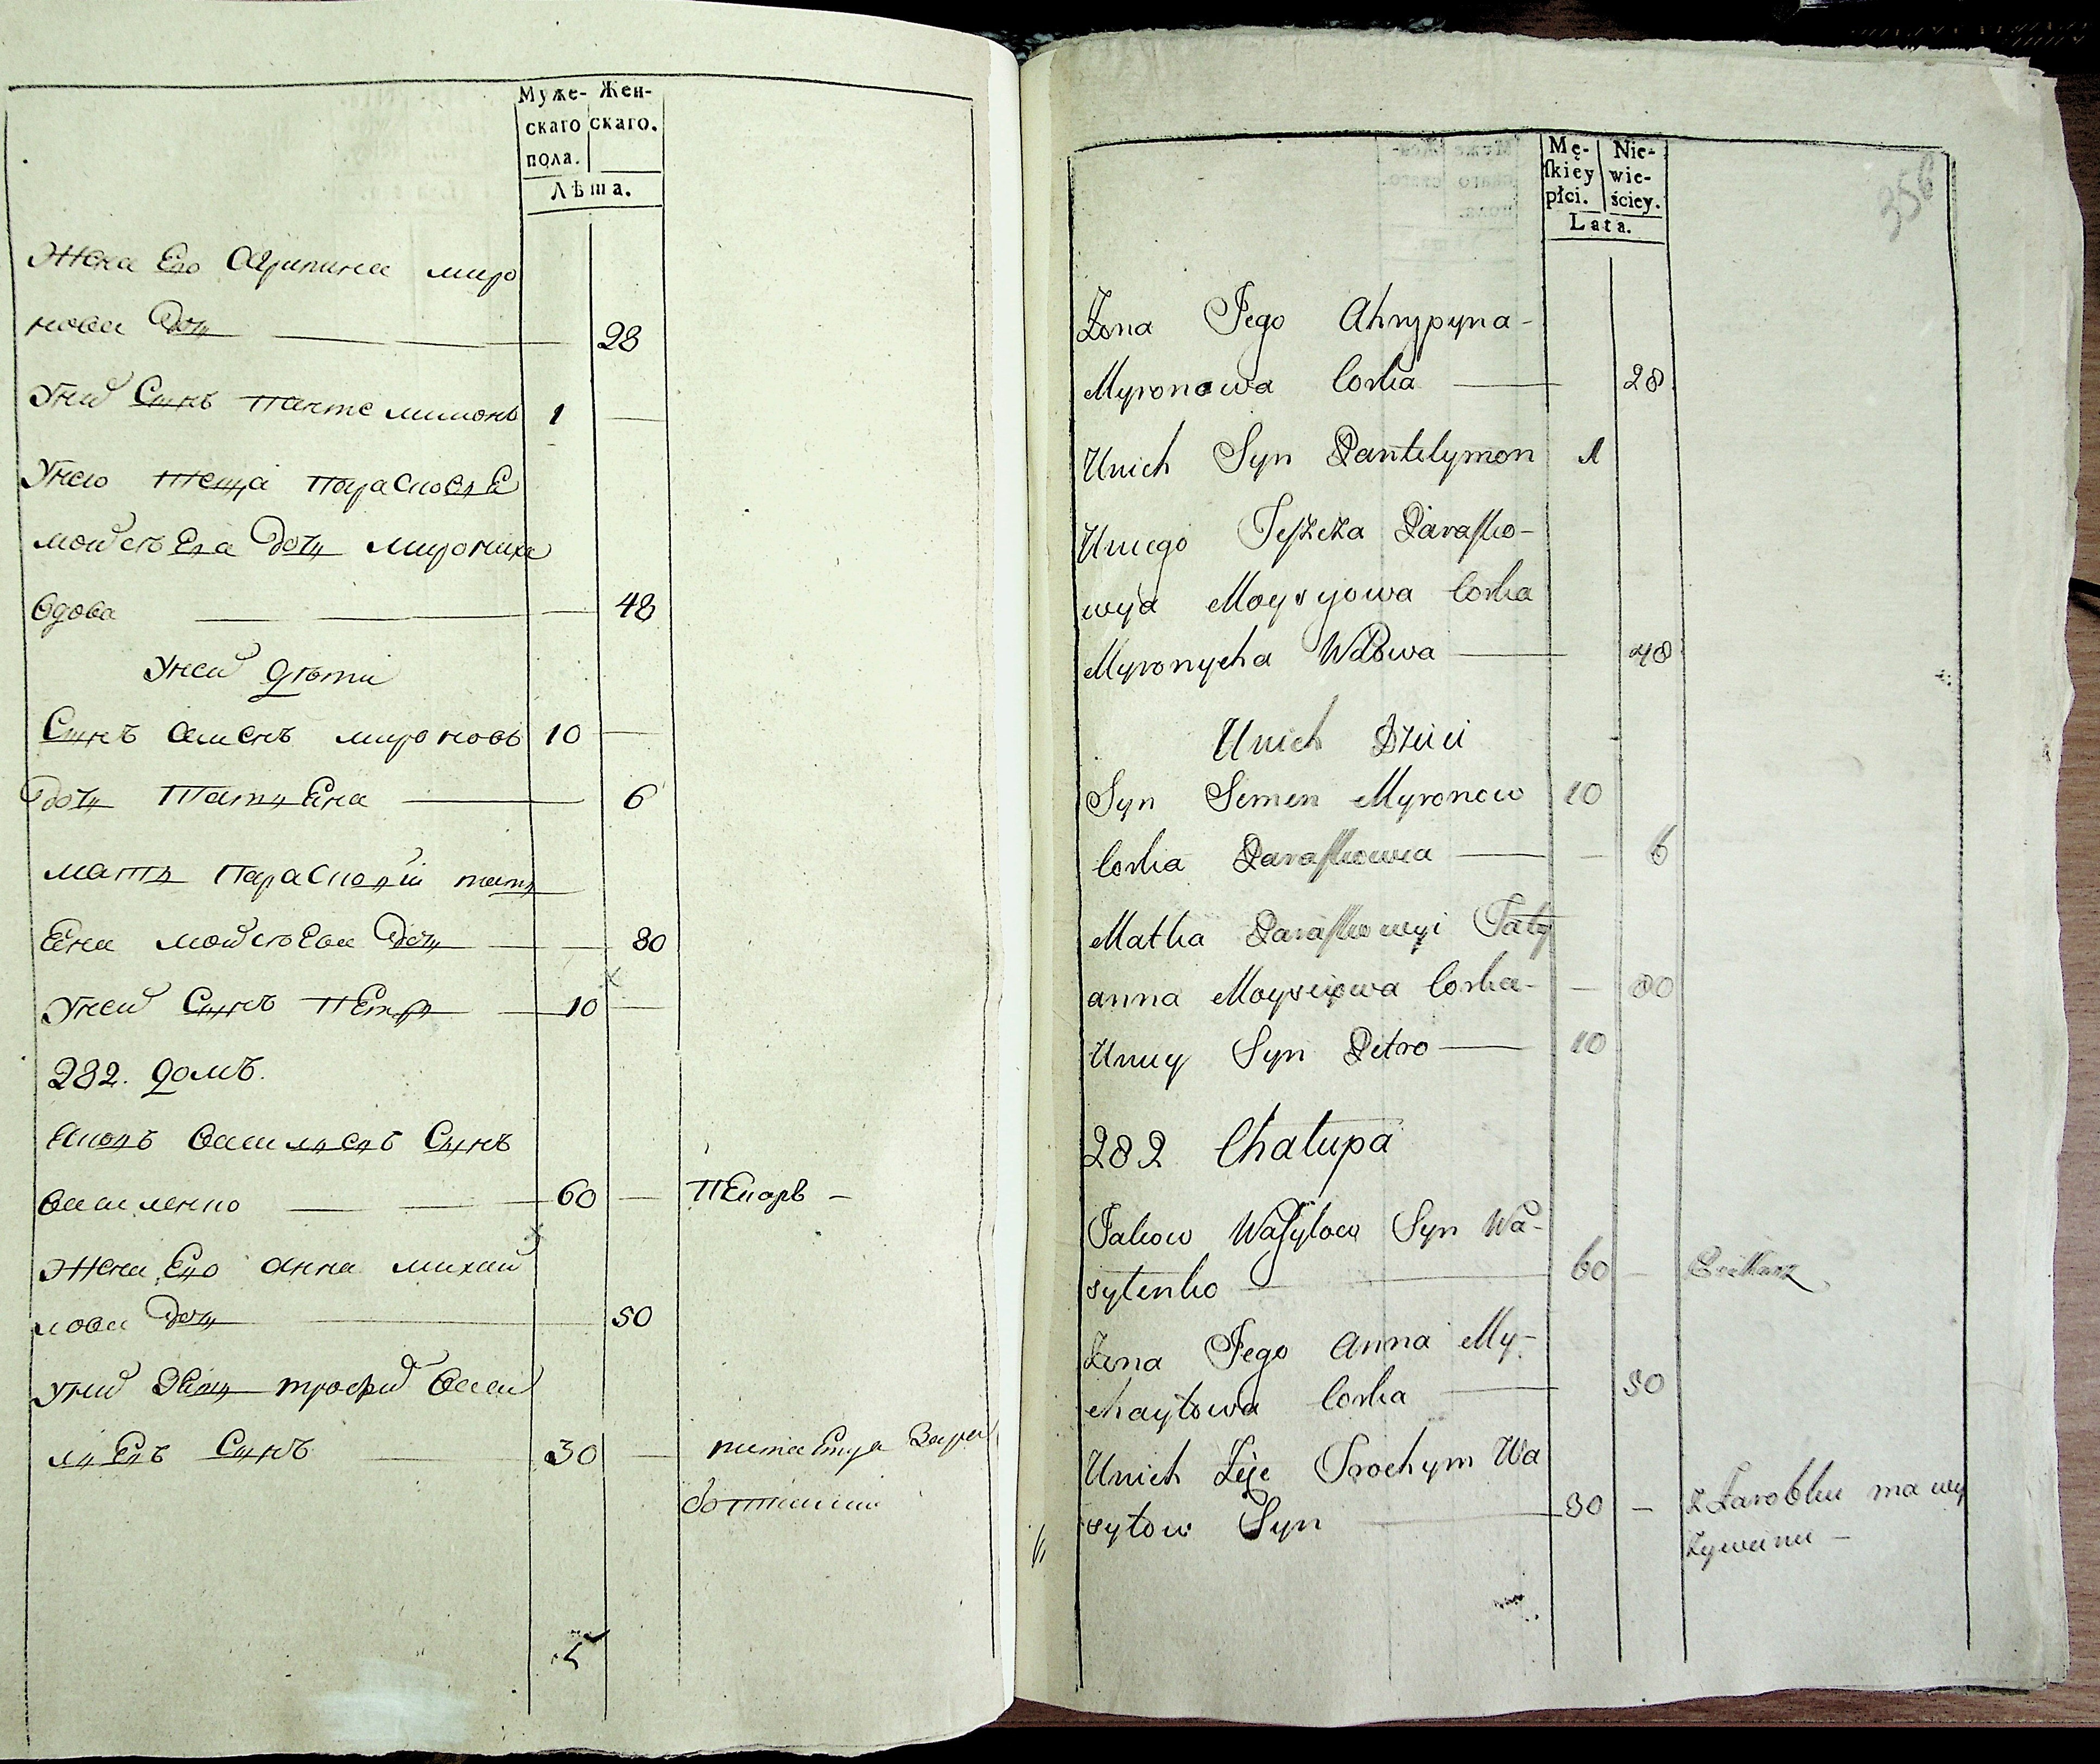 Муже- Жен-
скаго скаго.
пола.
Лѣта.
Жена Его Агрипина миро
нова Дочь 28
Уних Сынъ Пантелимонъ 1
Унего Теща Парасковѣя
мойсѣева дочь мирониха
вдова 48
Уней дѣти
Сынъ Семенъ мироновъ 10
дочь Татьяна 6
мать Парасковіи тать
яна мойсѣева дочь 80
Уней Сынъ Петръ 10
282. домъ.
Яковъ васильевъ Сынъ
василенко 60 Пекаръ
Жена Его анна михай
лова дочь 50
Уних зять трофим васи
льевъ Сынъ 30 питаетца зара
ботками
5
356
Mę- Nie-
ſkiey wie-
płci. ściey.
Lata.
Żona Jego Ahrypyna-
Myronowa Corka 28
Unich Syn Pantelymon 1
Uniego Teſzcza Paraſko-
wya Moysyjowa Corka
Myronycha Wdowa 48
Unich Dzieci
Syn Semen Myronow 10
Corka Paraſkowia 6
Matka Paraſkowyi Taty
anna Moysiejowa Corka 80
Uniey Syn Petro 10
282 Chałupa
Jakow Waſylow Syn Wa-
sylenko 60 Piekarz
Żona Jego Anna My-
chayłowa Corka 50
Unich Zięć Trochym Wa
sylow Syn 30 z Zarobku ma wy
żywienie